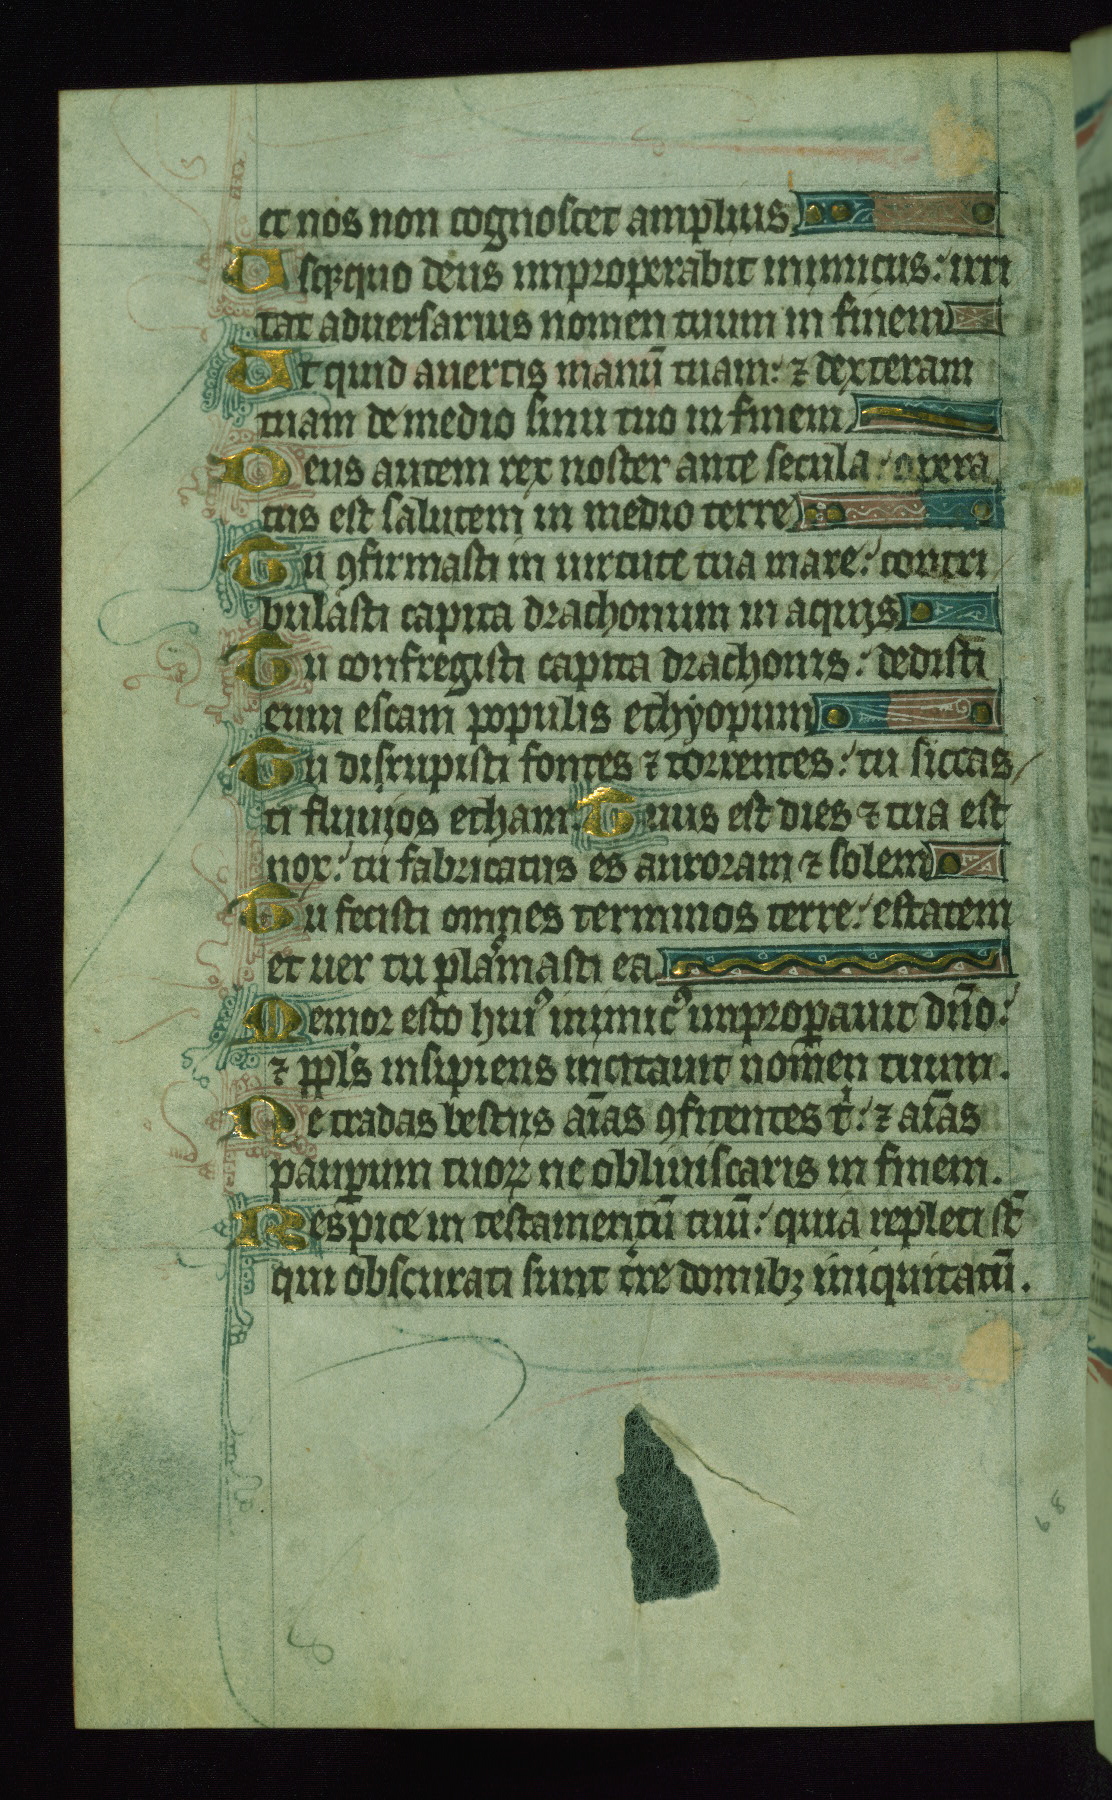 et nos non cognoscet amplius
Usq;quo deus improperabit inimicus: irri
tat aduersarius nomen tuum in finem
Ut quid auertis manū tuam: ⁊ dexteram
tuam de medio sinu tuo in finem
Deus autem rex noster ante secula: opera
tus est salutem in medio terre
Tu ꝯfirmasti in uirtute tua mare: contri
bulasti capita drachonum in aquis
Tu confregisti capita drachonis: dedisti
eum escam populis ethyopum
Tu disrupisti fontes ⁊ torrentes: tu siccas
ti fluuios etham. Tuus est dies ⁊ tua est
nox: tu fabricatus es auroram ⁊ solem
Tu fecisti omnes terminos terre: estatem
et uer tu plasmasti ea
Memor esto huiꝰ inimicꝰ improꝑauit dn̄o:
⁊ ppl's insipiens incitauit nomen tuum.
Ne tradas bestiis aīas ꝯfitentes tⁱ: ⁊ aīas
pauꝑum tuoꝝ ne obliuiscaris in finem.
Respice in testamentū tuū: quia repleti st̄
qui obscurati sunt t̄re domibꝫ iniquitatū.
68